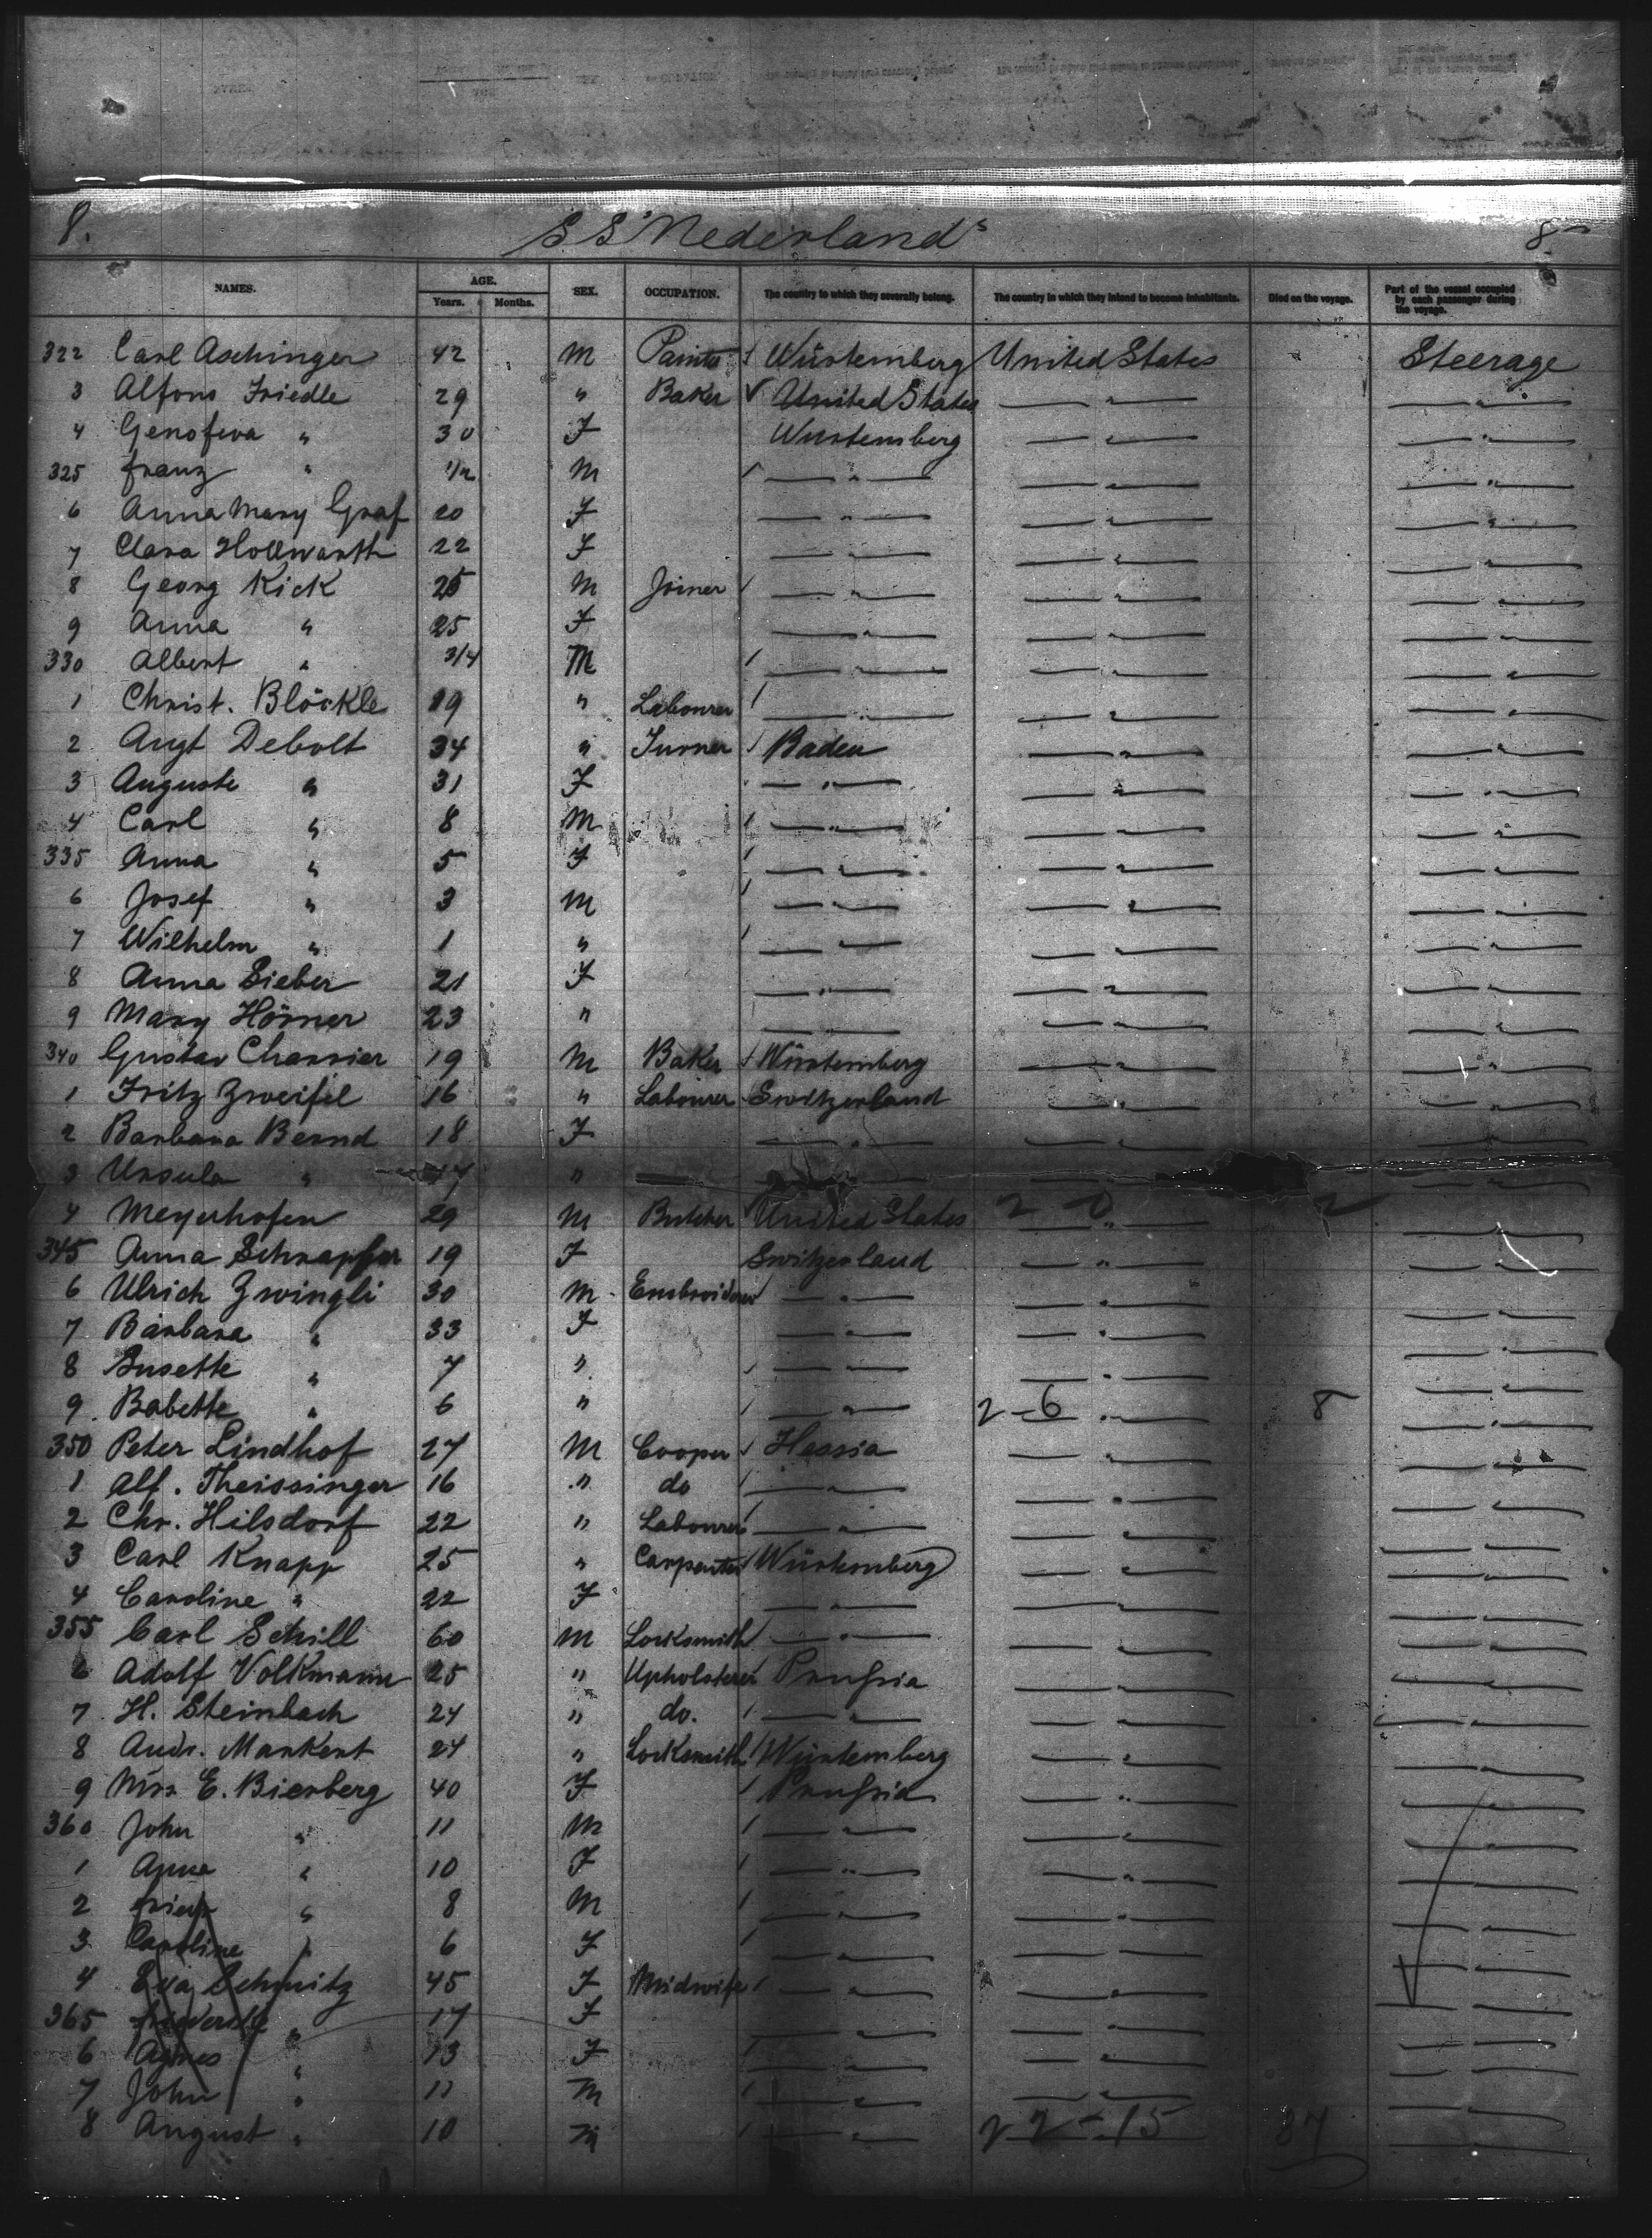 8. SS "Nederland" 8
NAMES. AGE. Years. Months. SEX. OCCUPATION. The country to which they severally belong. The country in which they intend to become inhabitants. Died on the voyage. Part of the vessel occupied by each passenger during the voyage.
322 Carl Aschinger 42 M Painter Würtemberg United States Steerage
3 Alfons Friedle 29 " Baker United States — " — — " —
4 Genofeva " 30 F Wurtemberg — " — — " —
325 Franz " M — " — — " — — " —
6 Anna Mary Graf 20 F — " — — " — — " —
7 Clara Hollwarth 22 F — " — — " — — " —
8 Georg Kick 25 M Joiner — " — — " — — " —
9 Anna " 25 F — " — — " — — " —
330 Albert " 3/4 M — " — — " — — " —
1 Christ. Blöckle 19 " Labourer — " — — " — — " —
2 Augt Debolt 34 " Turner Baden — " — — " —
3 Auguste " 31 F — " — — " — — " —
4 Carl " 8 M — " — — " — — " —
335 Anna " 5 F — " — — " — — " —
6 Josef " 3 M — " — — " — — " —
7 Wilhelm " 1 " — " — — " — — " —
8 Anna Sieber 21 F — " — — " — — " —
9 Mary Hörner 23 " — " — — " — — " —
340 Gustav Charrier 19 M Baker Würtemberg — " — — " —
1 Fritz Zweifel 16 " Labourer Switzerland — " — — " —
2 Barbara Bernd 18 F — " — — " — — " —
3 Ursula " "
4 Meyerhofen 29 M Butcher United States — " — — " —
345 Anna 19 F Switzerland — " — — " —
6 Ulrich Zwingli 30 M Embroiderer — " — — " — — " —
7 Barbara " 33 F — " — — " — — " —
8 Susette " 7 " — " — — " — — " —
9 Babette " 6 " — " — 2-6 — " — 8 — " —
350 Peter Lindhof 27 M Cooper Hessia — " — — " —
1 Alf. Theissinger 16 " do — " — — " — — " —
2 Chr. Hilsdorf 22 " Labourer — " — — " — — " —
3 Carl Knapp 25 " Carpenter Würtemberg — " — — " —
4 Caroline " 22 F — " — — " — — " —
355 Carl Schill 60 M Locksmith — " — — " — — " —
6 Adolf Volkmann 25 " Upholsterer Prussia — " — — " —
7 H. Steinbach 24 " do. — " — — " — — " —
8 Andr. Markert 24 " Locksmith Würtemberg — " — — " —
9 Mrs E. Bierberg 40 F Prussia — " — — " —
360 John " 11 M — " — — " — — " —
1 Anna " 10 F — " — — " — — " —
2 " 8 M — " — — " — — " —
3 Caroline " 6 F — " — — " — — " —
4 Eva Schmitz 45 F Midwife — " — — " —
365 " 17 F — " — — " — — " —
6 Agnes " 13 F — " — — " — — " —
7 John " 11 M — " — — " — — " —
8 August " 10 M — " — 22-15 37 — " —